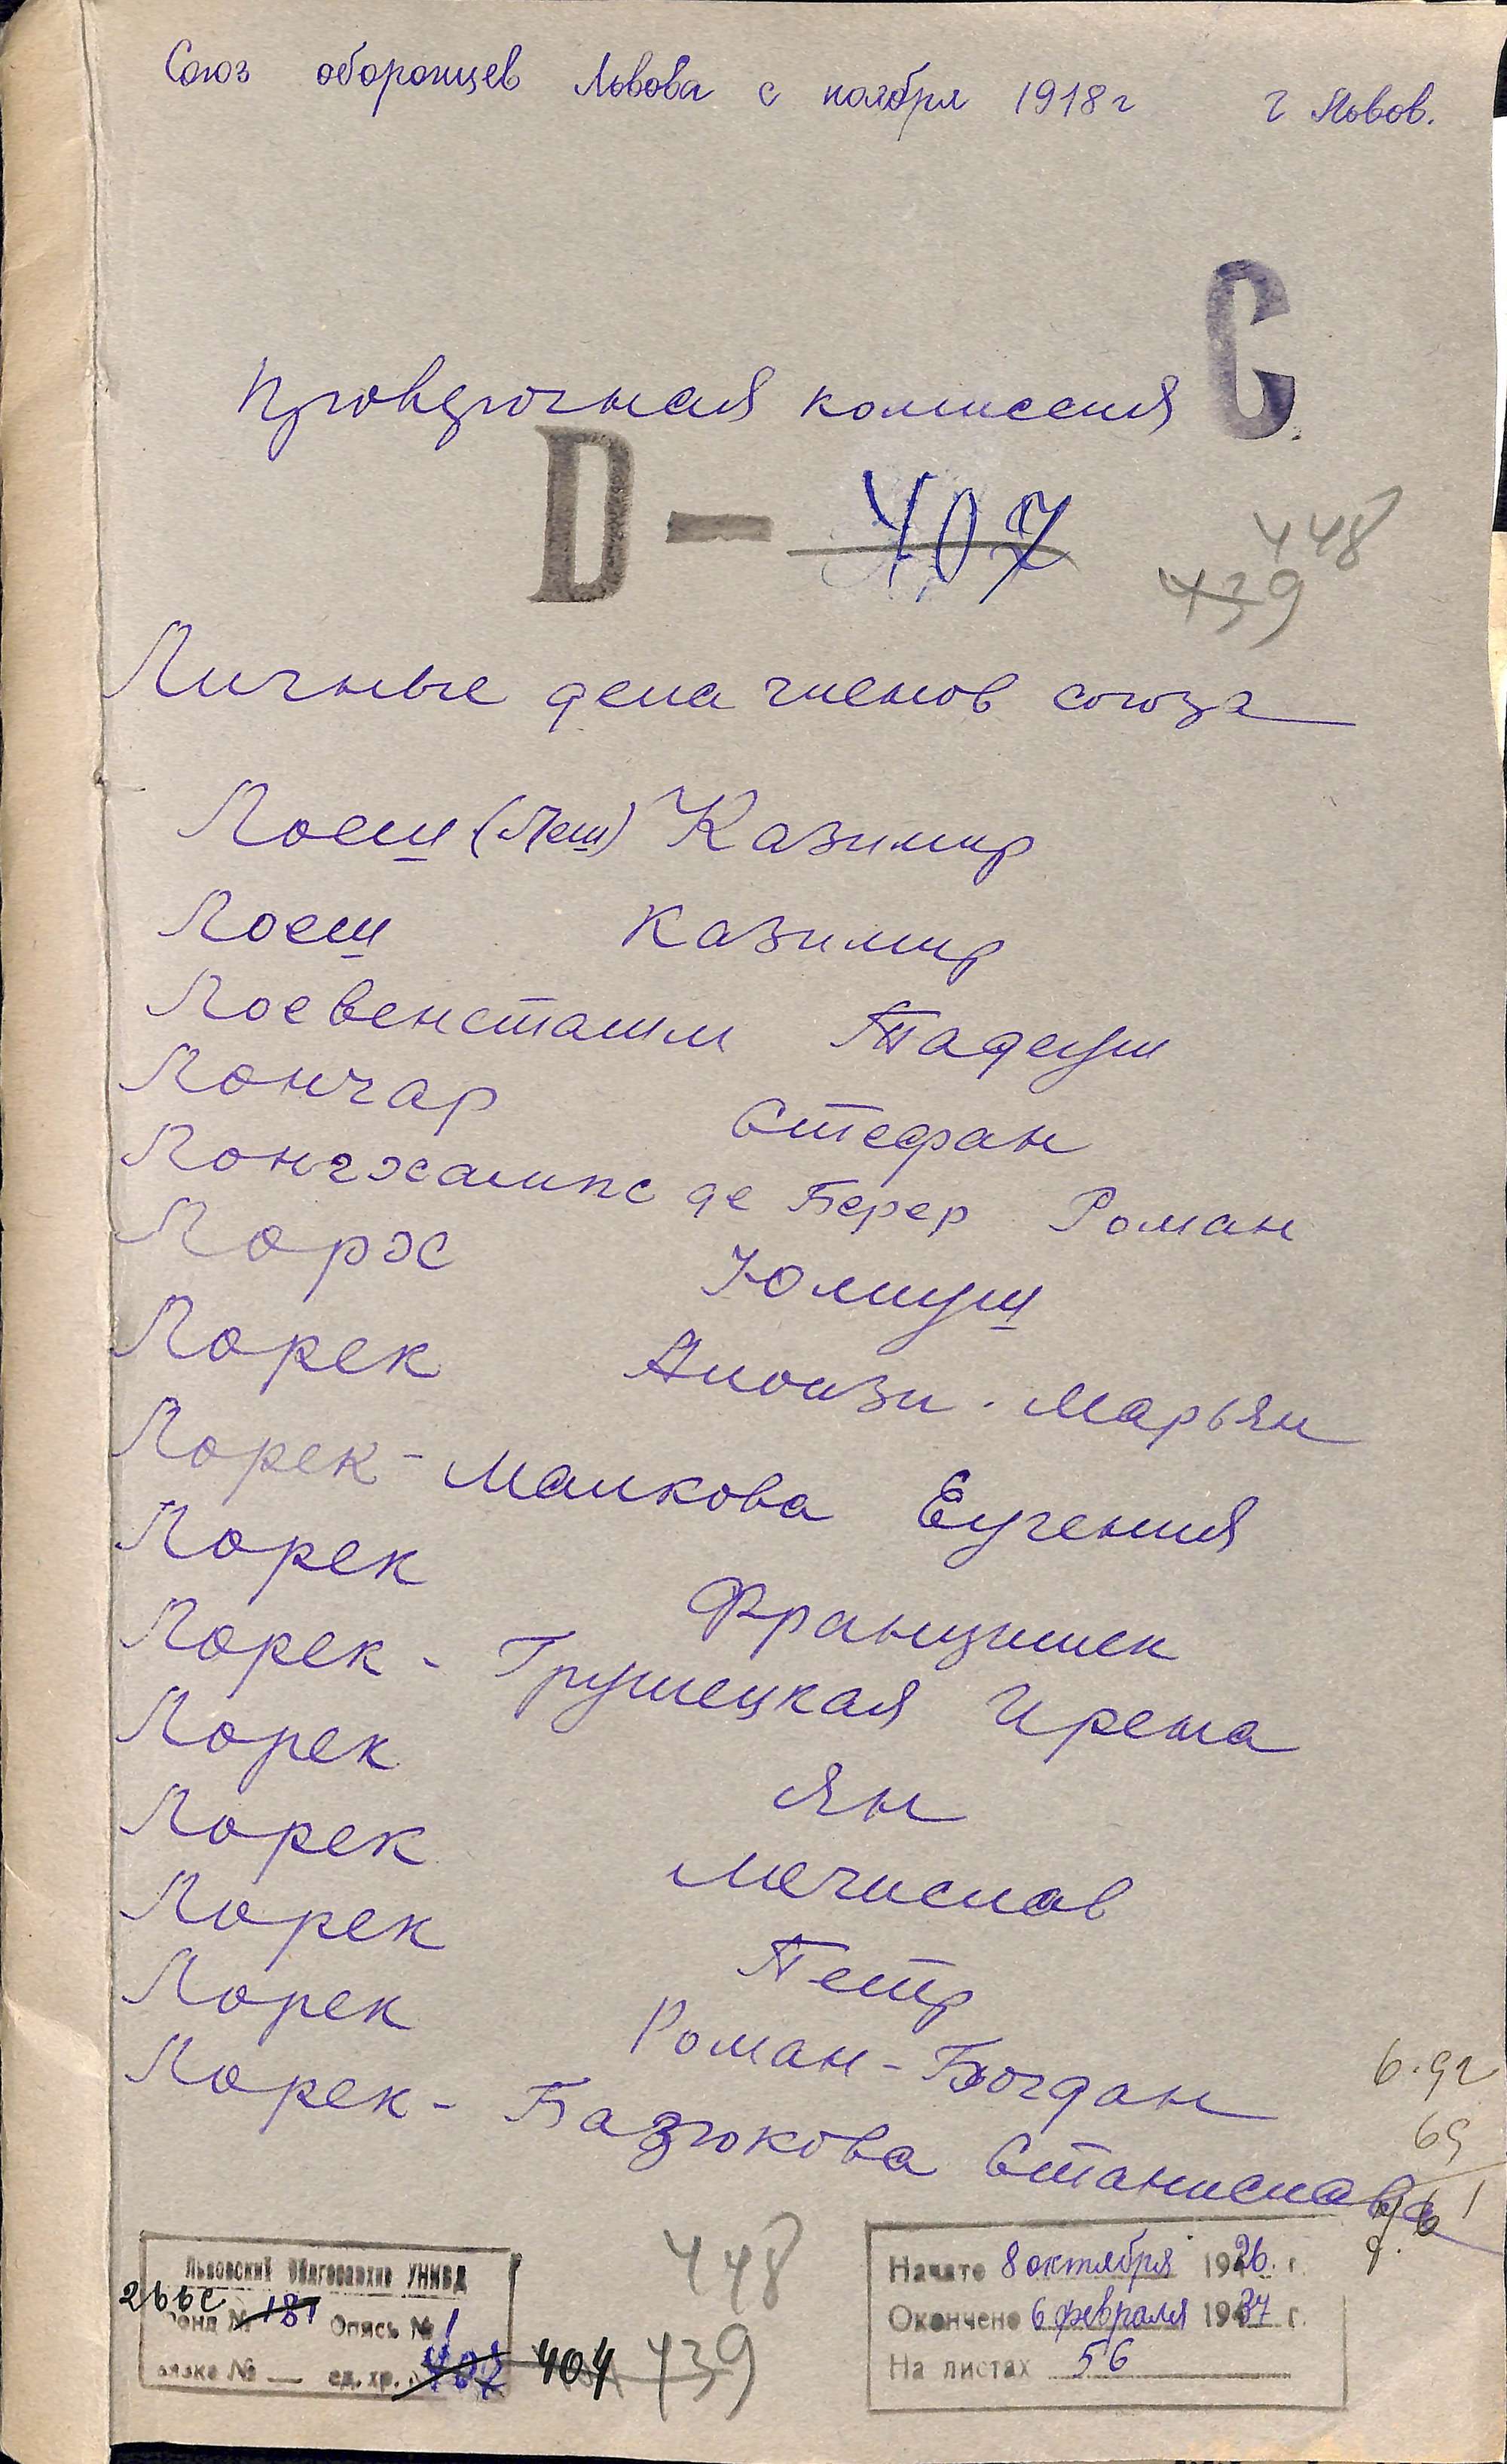 Союз оборонцев Львова с ноября 1918 г г Львов.
С
Проверочная комиссия
D — 407
448
439
Личные дела членов союза
Лоеш (Леш) Казимир
Лоеш Казимир
Лоевенстамм Тадеуш
Лончар Стефан
Лонгхампс де Берер Роман
Лорх Юлиуш
Лорек Алоизи - Марьян
Лорек - Малкова Еугения
Лорек Францишек
Лорек - Грушецкая Ирена
Лорек Ян
Лорек Мечислав
Лорек Петр
Лорек Роман - Богдан
Лорек - Базюкова Станислава
6.92
69
448
Львовский Облгосархив УНКВД
266с
Фонд № 181 Опись № 1
Связка № — ед. хр. 407 404 439
Начато 8 октября 1926. г.
Окончено 6 февраля 1937 г.
На листах 56